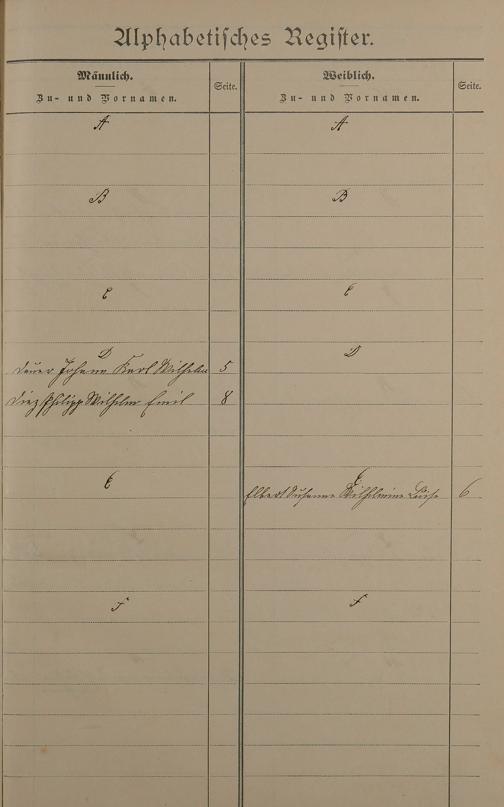 Alphabetisches Register.
Männlich.
Zu- und Vornamen.
Seite.
A
B
C
D
Deuer Johann Karl Wilhelm 5
Diez Philipp Wilhelm Emil 8
E
F
Weiblich.
Zu- und Vornamen.
Seite.
A
B
C
D
E
Elbert Susanne Wilhelmine Luise 6
F